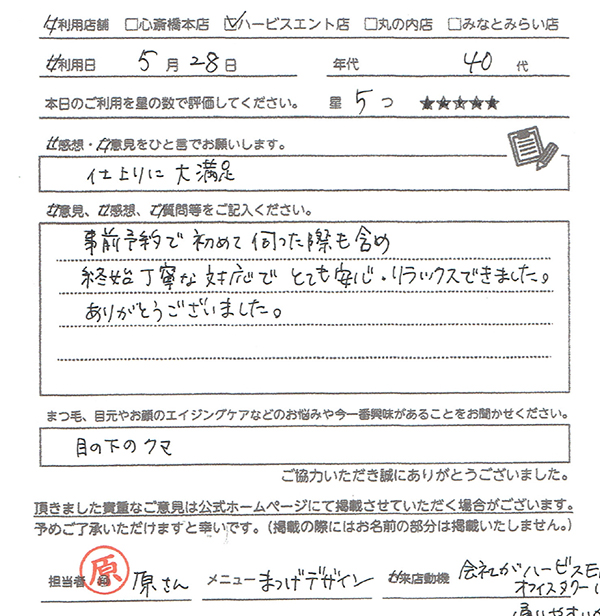 ご利用店舗 □心斎橋本店 ☑ハービスエント店 □丸の内店 □みなとみらい店
ご利用日 5月28日 年代 40代
本日のご利用を星の数で評価してください。 星 5つ ★★★★★
ご感想・ご意見をひと言でお願いします。
仕上りに大満足
ご意見、ご感想、ご質問等をご記入ください。
事前予約で初めて伺った際も含め
終始丁寧な対応でとても安心・リラックスできました。
ありがとうございました。
まつ毛、目元やお顔のエイジングケアなどのお悩みや今一番興味があることをお聞かせください。
目の下のクマ
ご協力いただき誠にありがとうございました。
頂きました貴重なご意見は公式ホームページにて掲載させていただく場合がございます。
予めご了承いただけますと幸いです。（掲載の際にはお名前の部分は掲載いたしません。）
担当者 原 原さん メニュー まつげデザイン ご来店動機 会社がハービスE
オフィスタワー
通いやすい